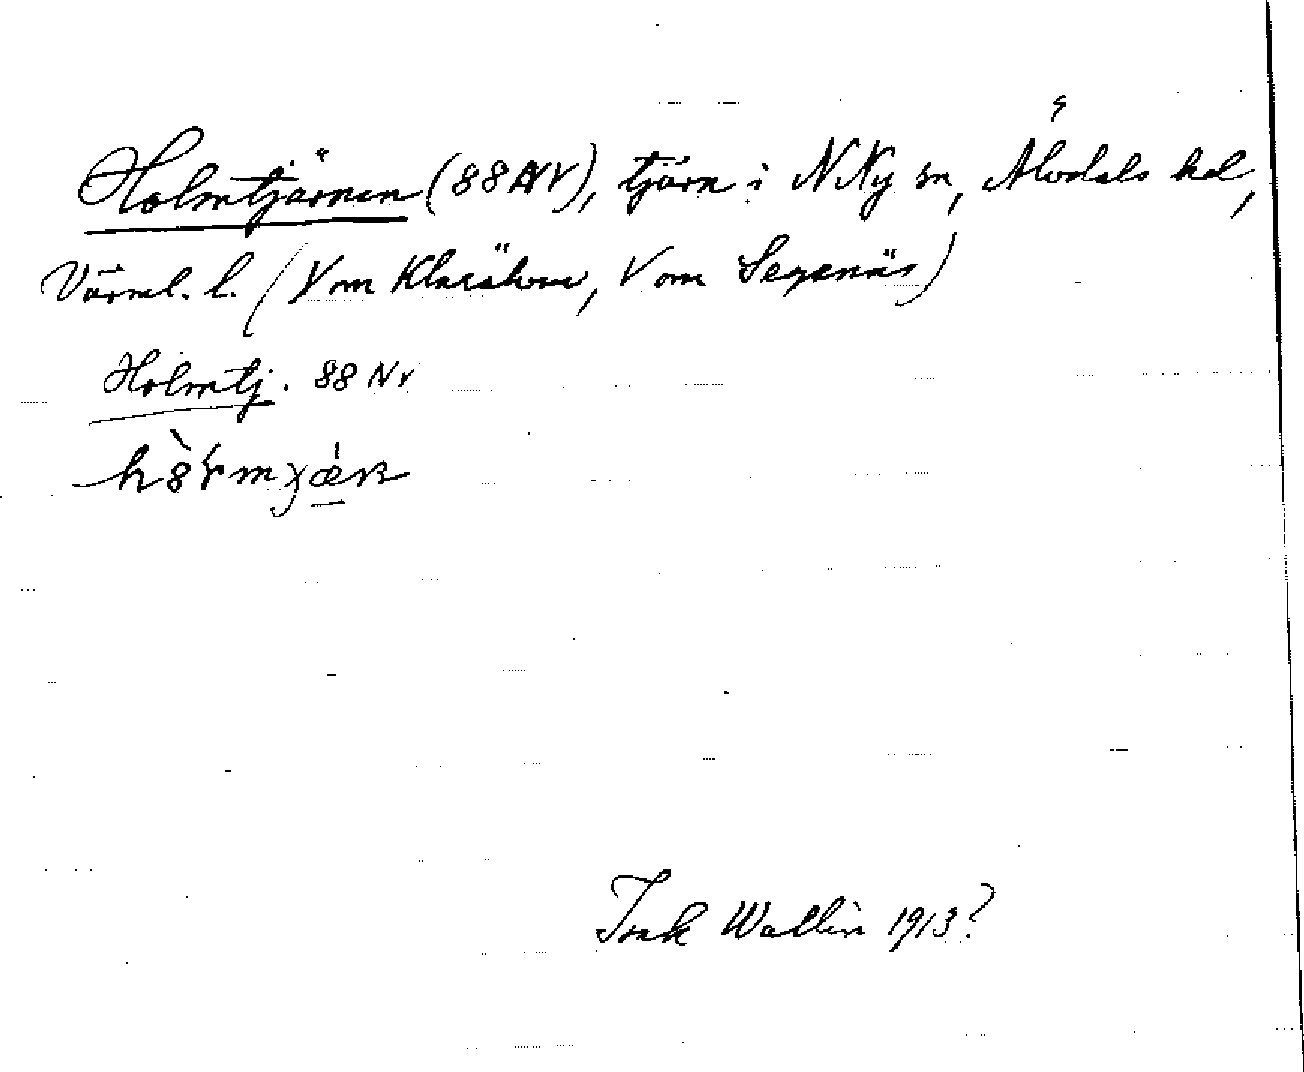 Holmtjärnen (88 NV), tjärn i N Ny sn, Älvdals hd,
Värml. l. (V om Klarälven, V om Segenäs)
Holmtj. 88 Nv
Isak Wallin 1913?